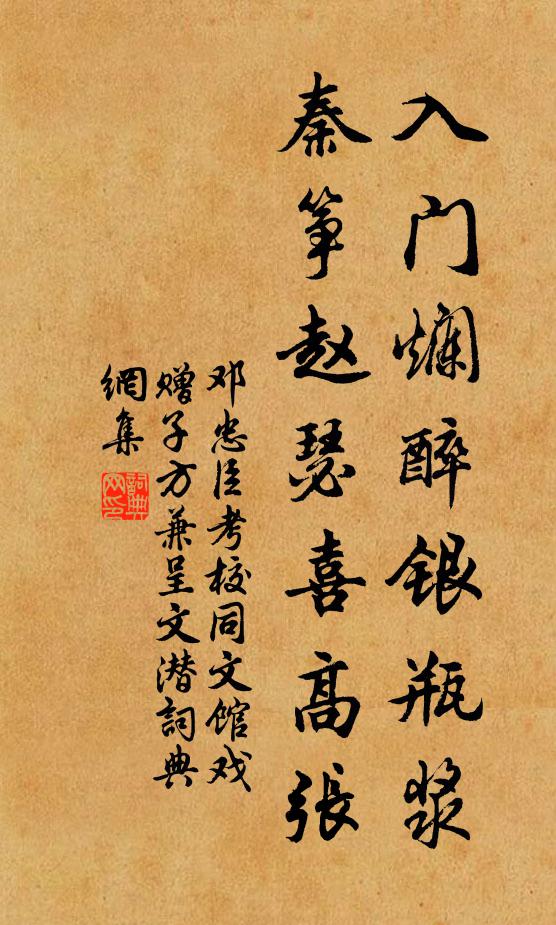 入门烂醉银瓶浆
秦筝赵瑟喜高張
邓忠臣考校同文馆戏
赠子方兼呈文潜詞典
網集
詞典
网印